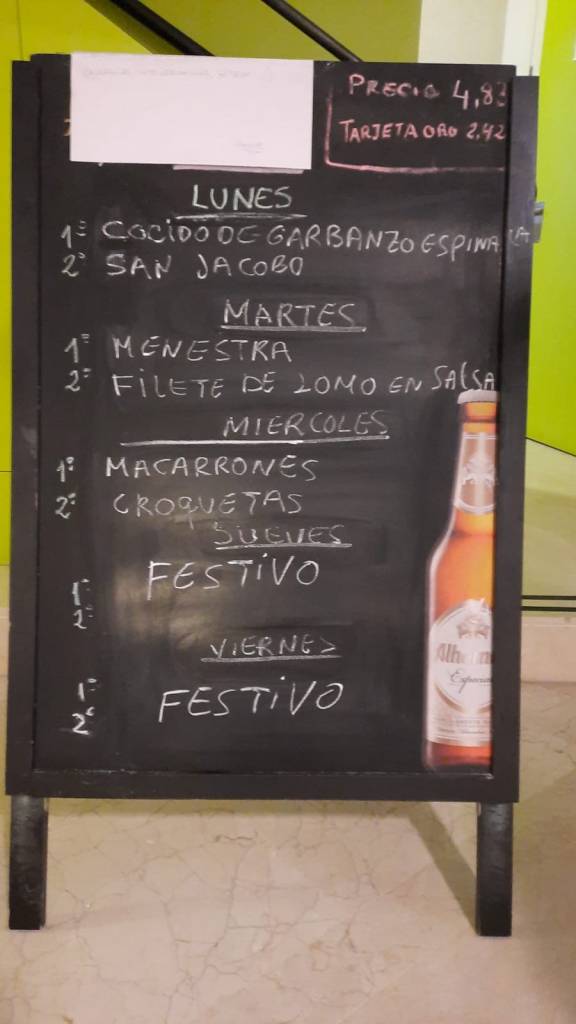 PRECIO 4,83
TARJETA ORO 2,42
LUNES
1º COCIDO DE GARBANZO ESPINACA
2º SAN JACOBO
MARTES
1º MENESTRA
2º FILETE DE LOMO EN SALSA
MIERCOLES
1º MACARRONES
2º CROQUETAS
JUEVES
FESTIVO
1º
2º
VIERNES
1º FESTIVO
2º
Alham
Especial